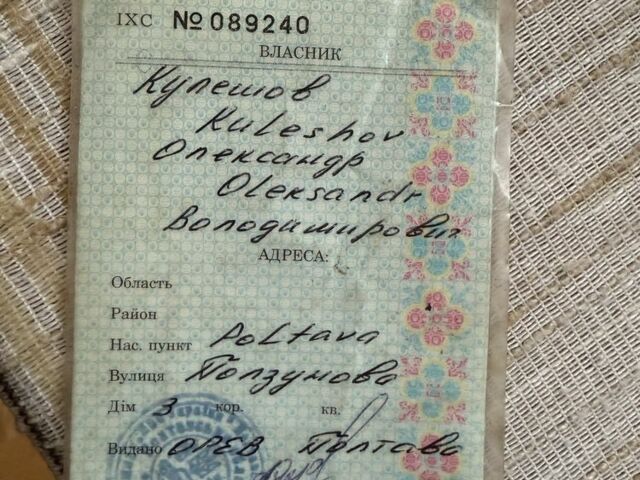 ІХС № 089240
ВЛАСНИК
Кулешов
Kuleshov
Олександр
Oleksandr
Володимирович
АДРЕСА:
Область
Район
Нас. пункт Poltava
Вулиця Ползунова
Дім 3 кор. кв.
Видано ОРЕВ Полтава